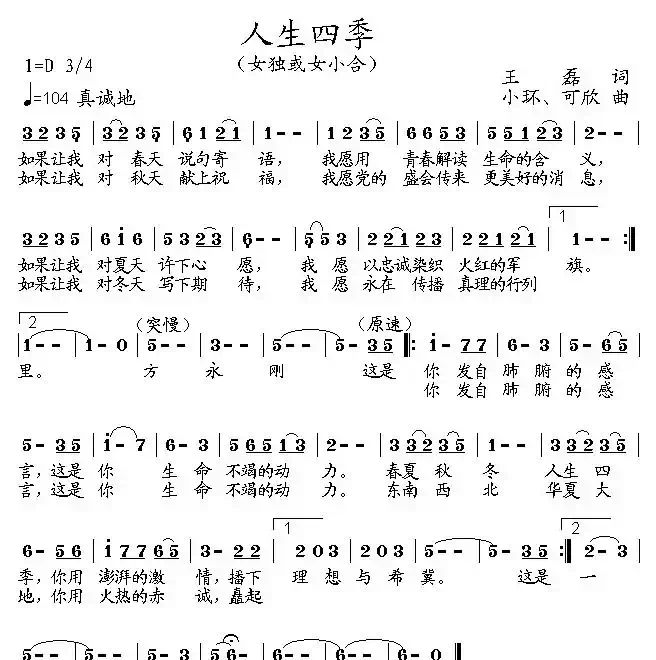 人生四季
(女独或女小合)
1=D 3/4
王 磊 词
♩=104 真诚地
小环、可欣 曲
3 2 3 5 | 3 2 3 5 | 6 1 2 1 | 1 - - | 1 2 3 5 | 6 6 5 3 | 5 5 1 2 3 | 2 - - |
如果让我 对 春天 说句寄 语, 我愿用 青春解读 生命的含 义,
如果让我 对 秋天 献上祝 福, 我愿党的 盛会传来 更美好的消 息,
3 2 3 5 | 6 i 6 | 5 3 2 3 | 6 - - | 5 5 3 | 2 2 1 2 3 | 2 2 1 2 1 | 1. 1 - - :|
如果让我 对夏天 许下心 愿, 我 愿 以忠诚染织 火红的军 旗。
如果让我 对冬天 写下期 待, 我 愿 永在 传播 真理的行列
2. | 1 - - | 1 - 0 | (突慢) 5 - - | 3 - - | 5 - - | 5 - 3 5 (原速) |: i - 7 7 | 6 - 3 | 5 - 6 5 |
里。 方 永 刚 这是 你 发自 肺 腑 的 感
你 发自 肺 腑 的 感
5 - 3 5 | i - 7 | 6 - 3 | 5 6 5 1 3 | 2 - - | 3 3 3 3 | 5 - 3 | 2 1 2 3 |
言, 这是 你 生 命 不竭的动 力。 春夏 秋 冬 人生 四
言, 这是 你 生 命 不竭的动 力。 东南 西 北 华夏 大
6 - 5 6 | i 7 7 6 5 | 3 - 2 2 | 1. 2 0 3 | 2 0 3 | 5 - - | 5 - 5 5 :| 2. 2 - 3 |
季, 你用 澎湃的激 情, 播下 理 想 与 希 冀。 这是 一
地, 你用 火热的赤 诚, 矗起
5 - - | 5 - - | 2 - - | 2 1 2 3 | 5 6 - | 6 - - | 6 - 0 ‖